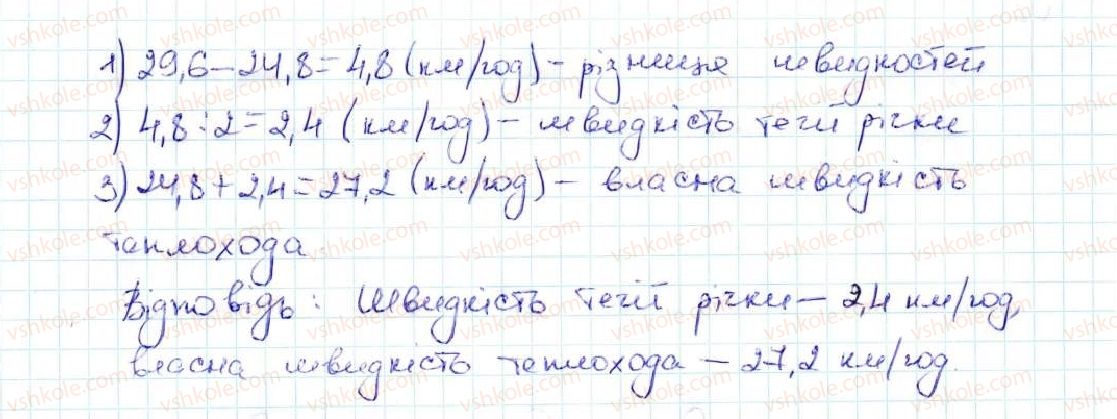 1) 29,6 – 24,8 = 4,8 (км/год) – різниця швидкостей
2) 4,8 : 2 = 2,4 (км/год) – швидкість течії річки
3) 24,8 + 2,4 = 27,2 (км/год) – власна швидкість
теплохода.
Відповідь: Швидкість течії річки – 2,4 км/год,
власна швидкість теплохода – 27,2 км/год.